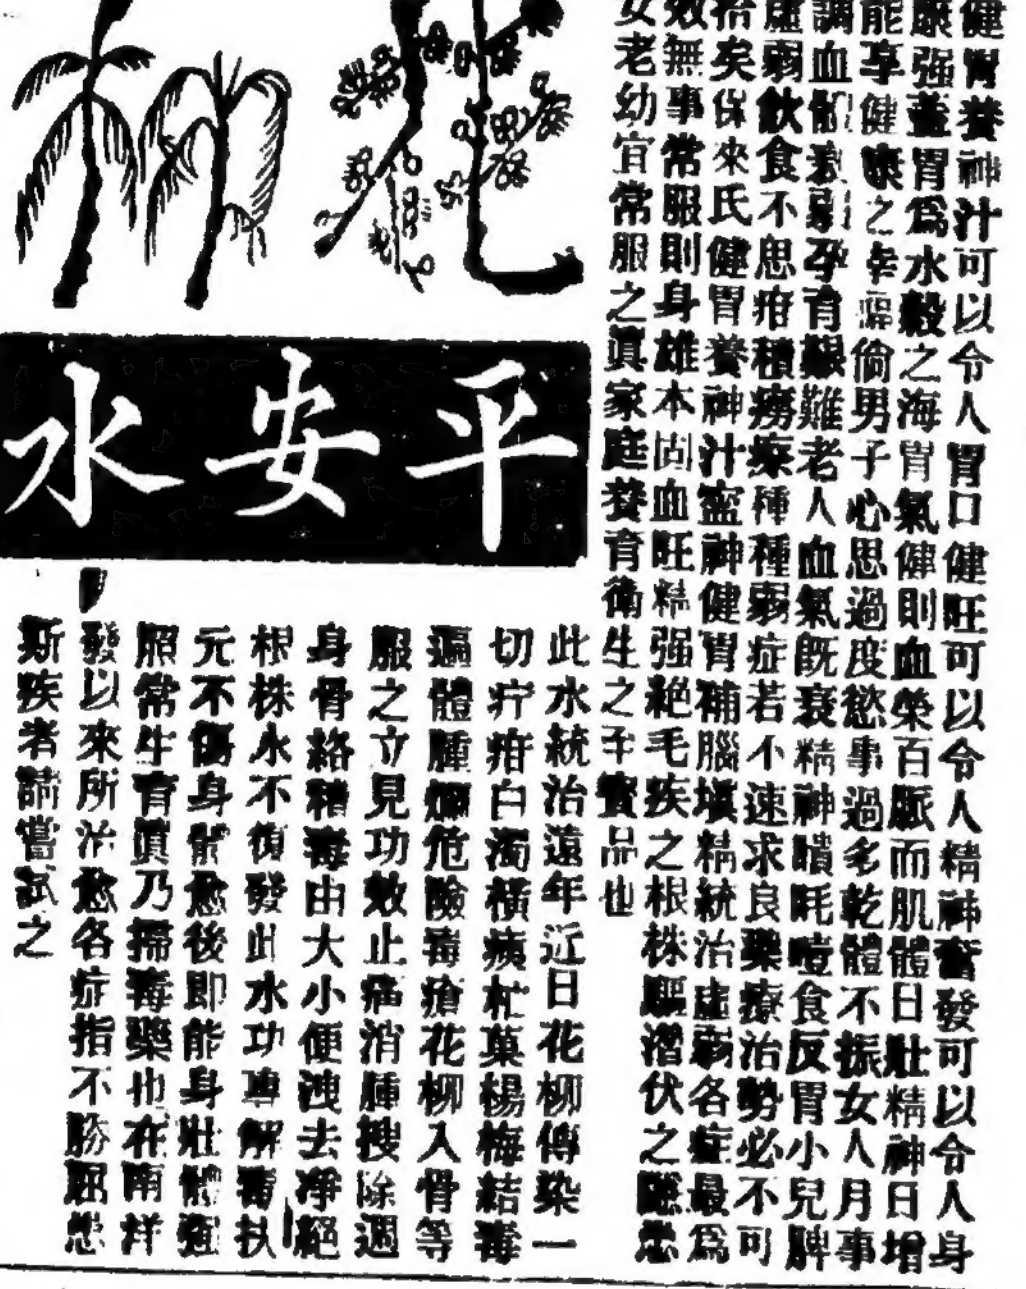 健胃養神汁可以令人胃口健旺可以令人精神奮發可以令人身
康强蓋胃為水穀之海胃氣健則血榮百脈而肌體日壯精神日增
能享健康之幸福倘男子心思過度慾事過多乾體不振女人月事
調血孕育艱難老人血氣既衰精神瞶眊噎食反胃小兒脾
虛弱飲食不思疳積癆瘵種種弱症若不速求良藥療治勢必不可
拾矣保來氏健胃養神汁寧神健胃補腦塡精統治虛弱各症最為
效無事常服則身雄本固血旺精强絕毛疾之根株驅潛伏之隱恙
女老幼宜常服之眞家庭養育衛生之寶品也
平安水
此水統治遠年近日花柳傳染一
切疔疳白濁橫痃杧菓楊梅結毒
遍體腫爛危險毒瘡花柳入骨等
服之立見功效止痛消腫搜除週
身骨絡積毒由大小便洩去凈絕
根株永不復發此水功專解毒扶
元不傷身體愈後即能身壯體强
照常生育眞乃掃毒藥也在南洋
發以來所治愈各症指不勝屈患
斯疾者請嘗試之